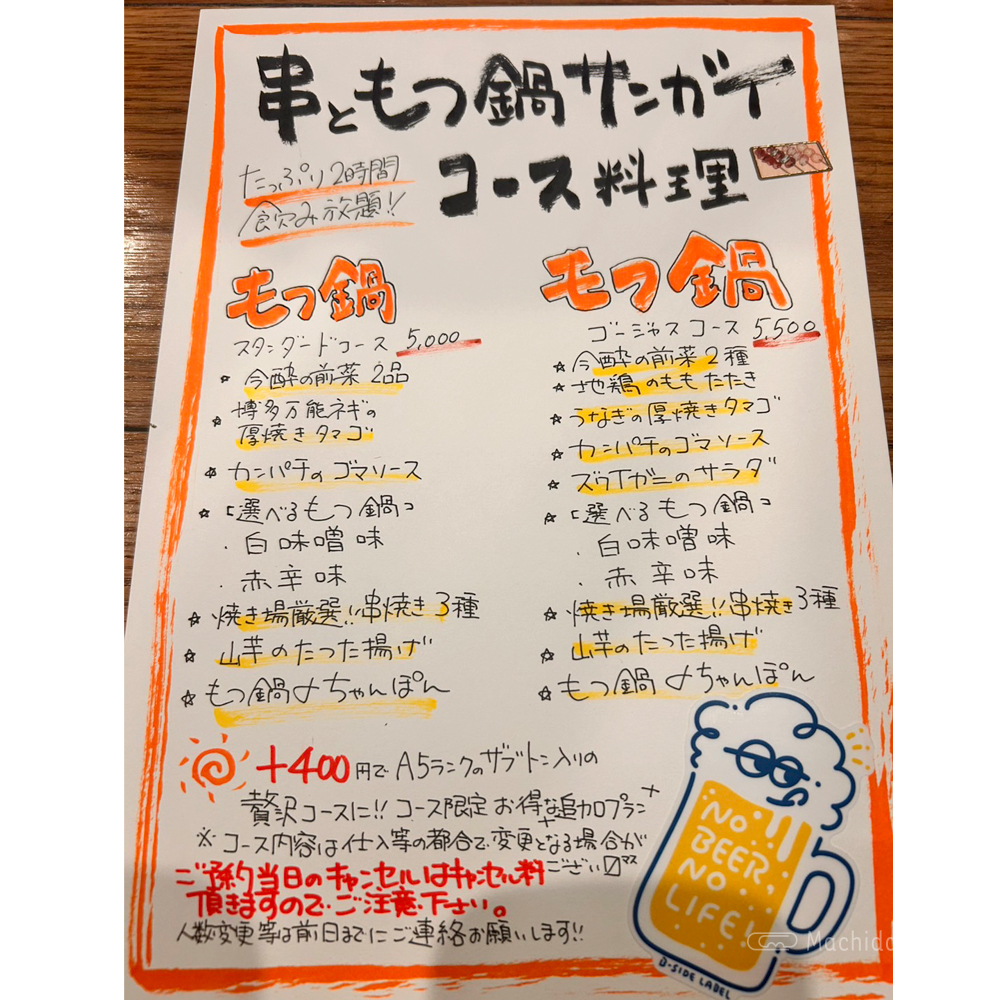 串ともつ鍋サンガイ
コース料理
たっぷり2時間
飲み放題!!
もつ鍋
スタンダードコース 5,000
☆ 今酔の前菜 2品
☆ 博多万能ネギの
厚焼きタマゴ
☆ カンパチのゴマソース
☆ 「選べるもつ鍋」
・白味噌味
・赤辛味
☆ 焼き場厳選!!串焼き3種
☆ 山芋のたつた揚げ
☆ もつ鍋〆ちゃんぽん
もつ鍋
ゴージャスコース 5,500
☆ 今酔の前菜2種
☆ 地鶏のももたたき
☆ うなぎの厚焼きタマゴ
☆ カンパチのゴマソース
☆ ズワイガニのサラダ
☆ 「選べるもつ鍋」
・白味噌味
・赤辛味
☆ 焼き場厳選!!串焼き3種
☆ 山芋のたつた揚げ
☆ もつ鍋〆ちゃんぽん
+400円でA5ランクのザブトン入りの
贅沢コースに!! コース限定 お得な追加プラン
※コース内容は仕入等の都合で変更となる場合が
ございます
ご予約当日のキャンセルはキャンセル料
頂きますので、ご注意下さい。
人数変更等は前日までにご連絡お願いします!!
NO
BEER,
NO
LIFE!
B-SIDE LABEL
Machida